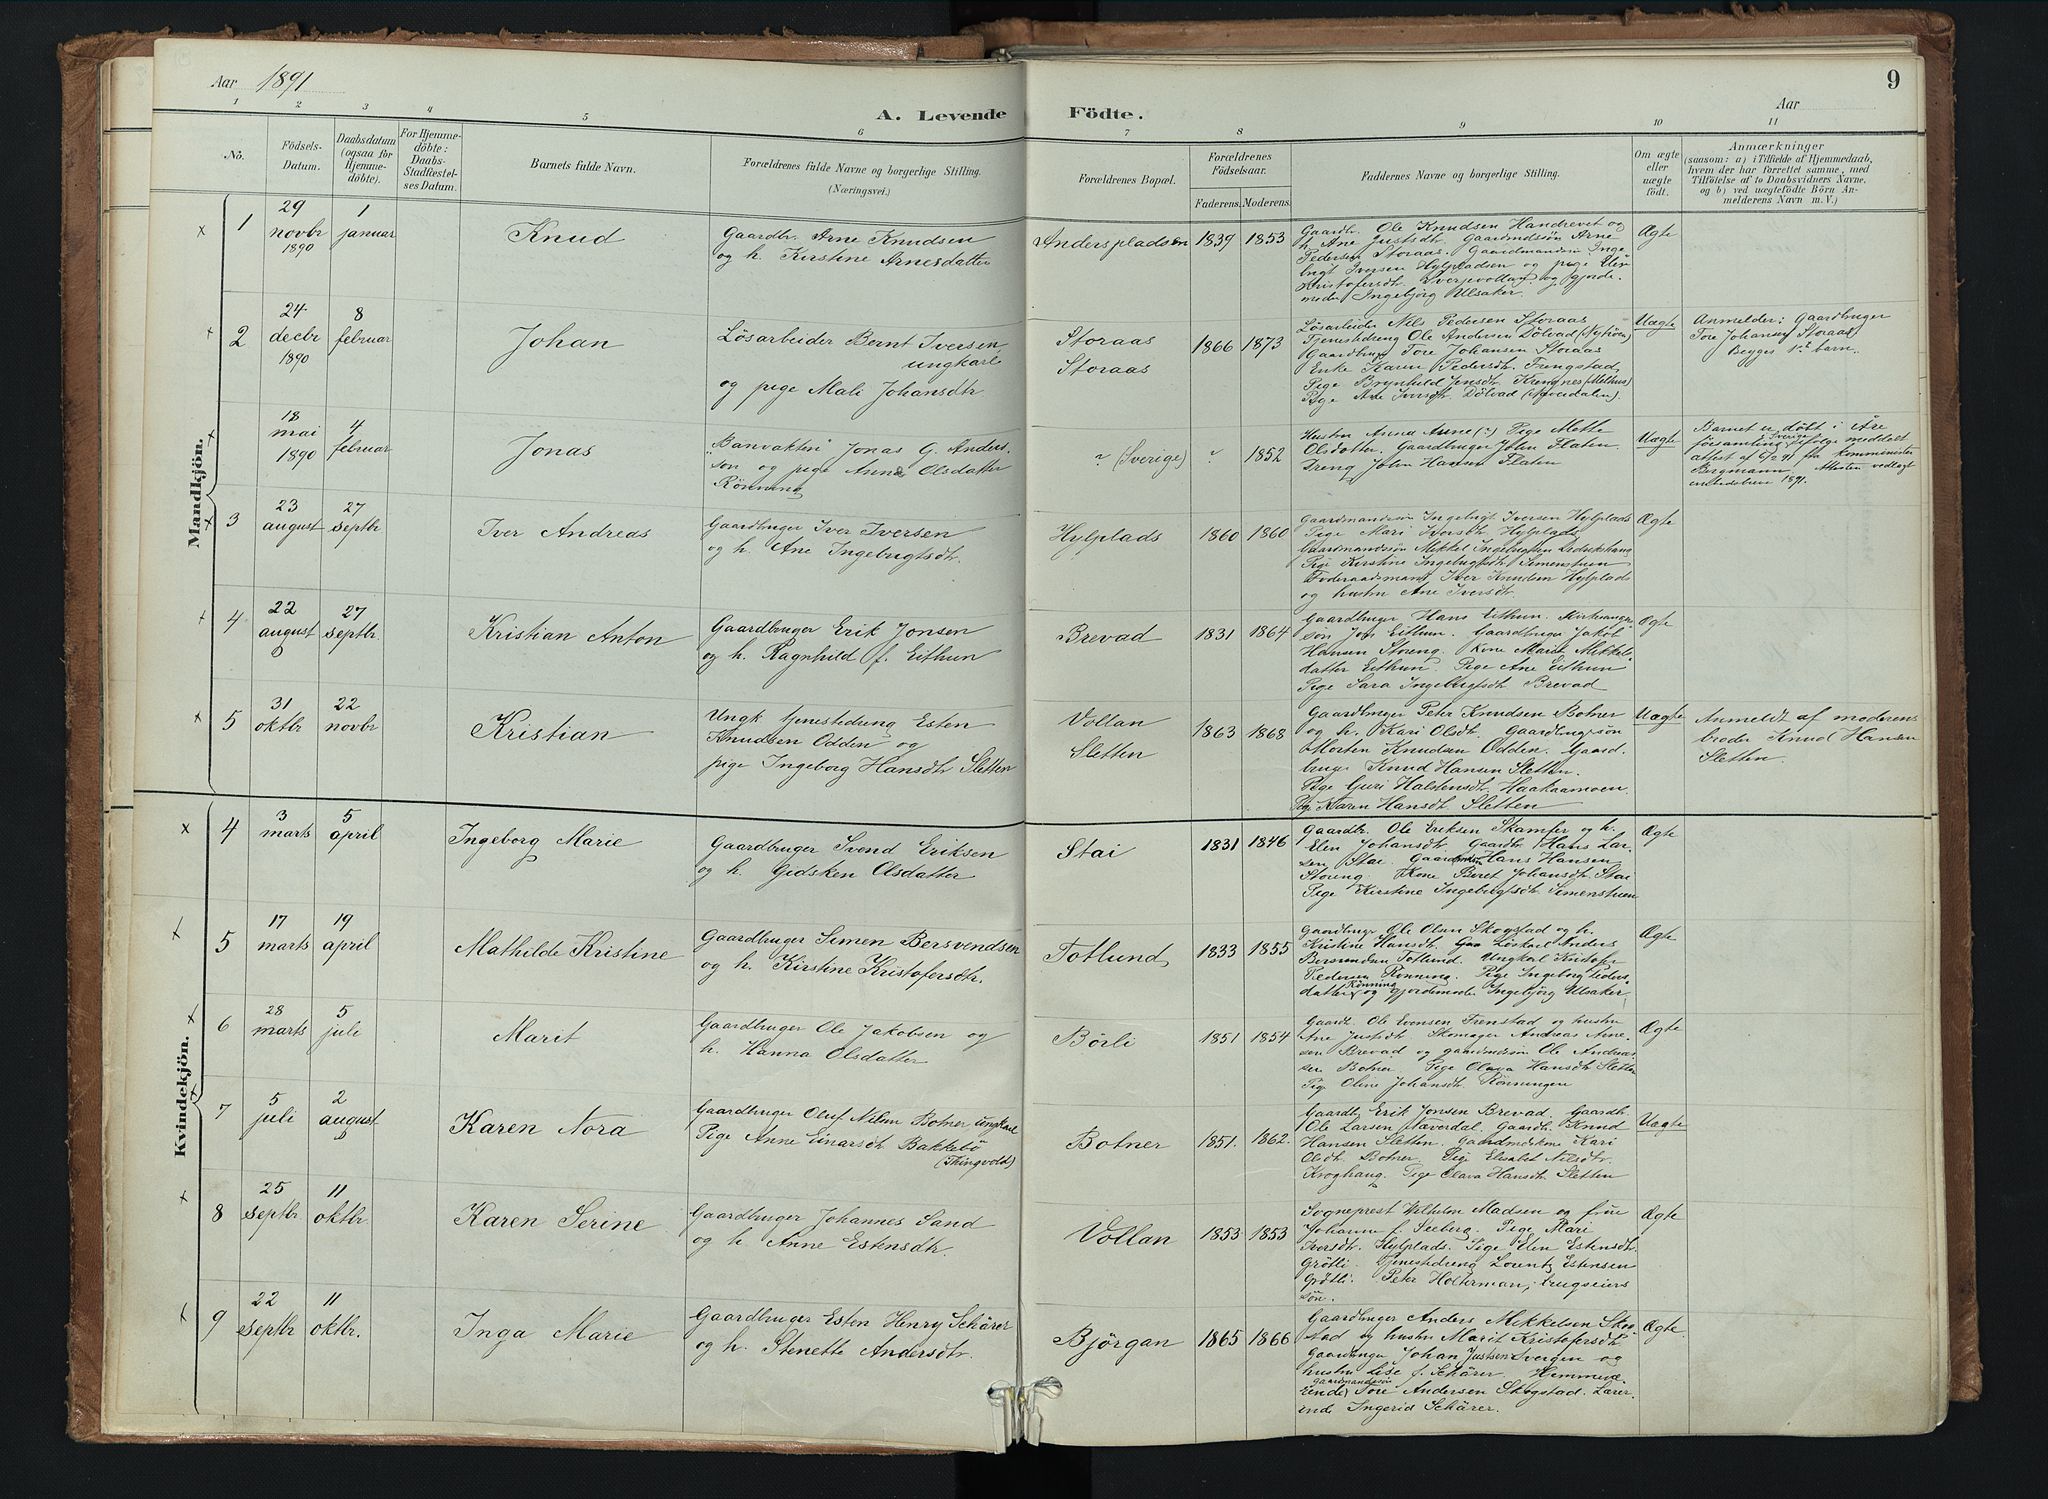 Aar 1891
9
A. Levende Födte.
Aar
1 2 3 4 5 6 7 8 9 10 11
Nö.
Födsels-
Datum.
Daabsdatum
(ogsaa for
Hjemme-
döbte).
For Hjemme-
döbte:
Daabs-
Stadfæstel-
ses Datum.
Barnets fulde Navn.
Forældrenes fulde Navne og borgerlige Stilling.
(Næringsvei.)
Forældrenes Bopæl.
Forældrenes
Födselsaar.
Faderens. Moderens.
Faddernes Navne og borgerlige Stilling.
Om ægte
eller
uægte
födt.
Anmærkninger
(saasom: a) i Tilfælde af Hjemmedaab,
hvem der har forrettet samme, med
Tilföielse af to Daabsvidners Navne,
og b) ved uægtefödte Börn An-
melderens Navn m. V.)
Mandkjön.
1
29
novbr
1890
1
januar
Knud
Gaardbr. Arne Knudsen
og h. Kirstine Arnesdatter
Anderspladsen
1839 1853
Gaardbr. Ole Knudsen Handrevet og
h. Ane Justsdtr. Gaardmdssön Arne
Pedersen Storaas. Gaardmandssön Inge
brigt Iversen Hylpladsen og pige Elen
Kristofersdtr. og gjorde-
moder Ingebjörg Ulsaker.
Ægte
2
24
decbr
1890
8
februar
Johan
Lösarbeider Bernt Iversen
ungkarl
og pige Mali Johansdtr
Storaas
Storaas
1866 1873
Lösarbeider Nils Pedersen Storaas
Tjenestedreng Ole Andersen Dölvad
Gaardbruger Tore Johansen Storaas
Enke Karen Pedersdtr. Frengstad
Pige Brynhild Jensdtr. Krengnes (Melhus)
Pige Ane Iversdtr. Dölvad
Uægte
Anmelder: Gaardbruger
Tore Johansen Storaas
Begges 1st barn.
18
mai
1890
4
februar
Jonas
"Banvakten" Jonas G. Anders-
son og pige Anna Olsdatter
Rönning
" (Sverige)
" 1852
Hustru Anna Anne (?) Pige Mette
Olsdatter. Gaardbruger John Flaten
Dreng John Hansen Flaten
Uægte
Barnet er döbt i Åre
församling Sverige ifölge meddelt
attest af 6/2 91 fra kommenister
Bergmann, Attesten vedlagt
1891.
3
23
august
27
septbr
Iver Andreas
Gaardbruger Iver Iversen
og h. Ane Ingebrigtsdtr.
Hylplads
1860 1860
Gaardmandssön Ingebrigt Iversen Hylplads
Pige Mari Iversdtr. Hylplads
Gaardmandssön Mikkel Ingebrigtsen Didrikshaug
Pige Kirstine Ingebrigtsdtr. Simenstuen
Föderaadsmand Iver Knudsen Hylplads
og hustru Ane Iversdtr.
Ægte
4
22
august
27
septbr.
Kristian Anton
Gaardbruger Erik Jonsen
og h. Ragnhild f. Eithun
Brevad
1831 1864
Gaardbruger Hans Eithun. Kirkesanger-
sön Jon Eithun. Gaardbruger Jakob
Hansen Storeng. Kone Marie Mikkels-
datter Eithun. Pige Ane Eithun
Pige Sara Ingebrigtsdtr Brevad
Ægte
5
31
oktbr
22
novbr
Kristian
Ungk tjenestedreng Esten
Knudsen Odden og
pige Ingeborg Hansdtr Sletten
Vollan
Sletten
1863 1868
Gaardbruger Peter Knudsen Botner
og h. Kari Olsdtr. Gaardbrugersön
Morten Knudsen Odden. Gaard-
bruger Knud Hansen Sletten.
Pige Guri Halstensdtr. Haakaamoen
Pige Karen Hansdtr Sletten
Uægte
Anmeldt af moderens
broder Knud Hansen
Sletten.
Kvindekjön.
4
3
marts
5
april
Ingeborg Marie
Gaardbruger Svend Eriksen
og h. Gidsken Olsdatter
Stai
1831 1846
Gaardbr. Ole Eriksen Skamfer og h.
Elen Johansdtr. Gaardbr Hans Lar-
sen Stai. Hans Hansen
Storeng. Kone Beret Johansdtr Stai
Pige Kirstine Ingebrigtsdtr Simenstuen
Ægte
5
17
marts
19
april
Mathilde Kristine
Gaardbruger Simen Bersvendsen
og h. Kirstine Kristofersdtr.
Totlund
1833 1855
Gaardbruger Ole Olsen Skogstad og h.
Kristine Hansdtr. Löskarl Anders
Bersvendsen Totlund. Ungkarl Kristofer
Pedersen Rönning. Pige Ingeborg Peders-
datter Rönning og gjordemoder Ingebjörg Ulsaker.
Ægte
6
28
marts
5
juli
Marit
Gaardbruger Ole Jakobsen og
h. Hanna Olsdatter
Börli
1851 1854
Gaardbr. Ole Evensen Frenstad og hustru
Ane Justsdtr. Skomager Andreas Arne-
sen Brevad og gaardmdssön Ole Andreas-
sen Botner. Pige Olava Hansdtr Sletten
Pige Oline Johansdtr. Rönningen
Ægte
7
5
juli
2
august
Karen Nora
Gaardbruger Oluf Nilsen Botner ungkarl
Pige Anne Einarsdtr Bakkebö
(Thingvold)
Botner
1851. 1862.
Gaardbr Erik Jonsen Brevad. Gaardbr.
Ole Larsen Næverdal. Gaardbr. Knud
Hansen Sletten. Gaardmdskone Kari
Olsdtr. Botner. Pige Elisabet Nilsdtr.
Kroghaug. Pige Olava Hansdtr Sletten
Uægte
8
25
septbr
11
oktbr.
Karen Serine
Gaardbruger Johannes Sand
og h. Anne Estensdtr.
Vollan
1853 1853
Sogneprest Wilhelm Madsen og frue
Johanne f. Seeberg. Pige Mari
Iversdtr. Hylplads. Pige Elen Estensdtr.
Grötli. Tjenestedreng Lorentz Estensen
Grötli. Peter Holterman, brugseiers
sön.
Ægte
9
22
septbr
11
oktbr.
Inga Marie
Gaardbruger Esten Henry Schärer
og h. Stenette Andersdtr.
Björgan
1865 1866
Gaardbruger Anders Mikkelsen Skog-
stad og hustru Marit Kristofersdtr.
Gaardbruger Johan Justsen Svergen og
hustru Lise f. Schärer. Hemmevæ-
rende gaardmandssön Tore Andersen Skogstad. Lærer-
inde Ingerid Schärer.
Ægte.